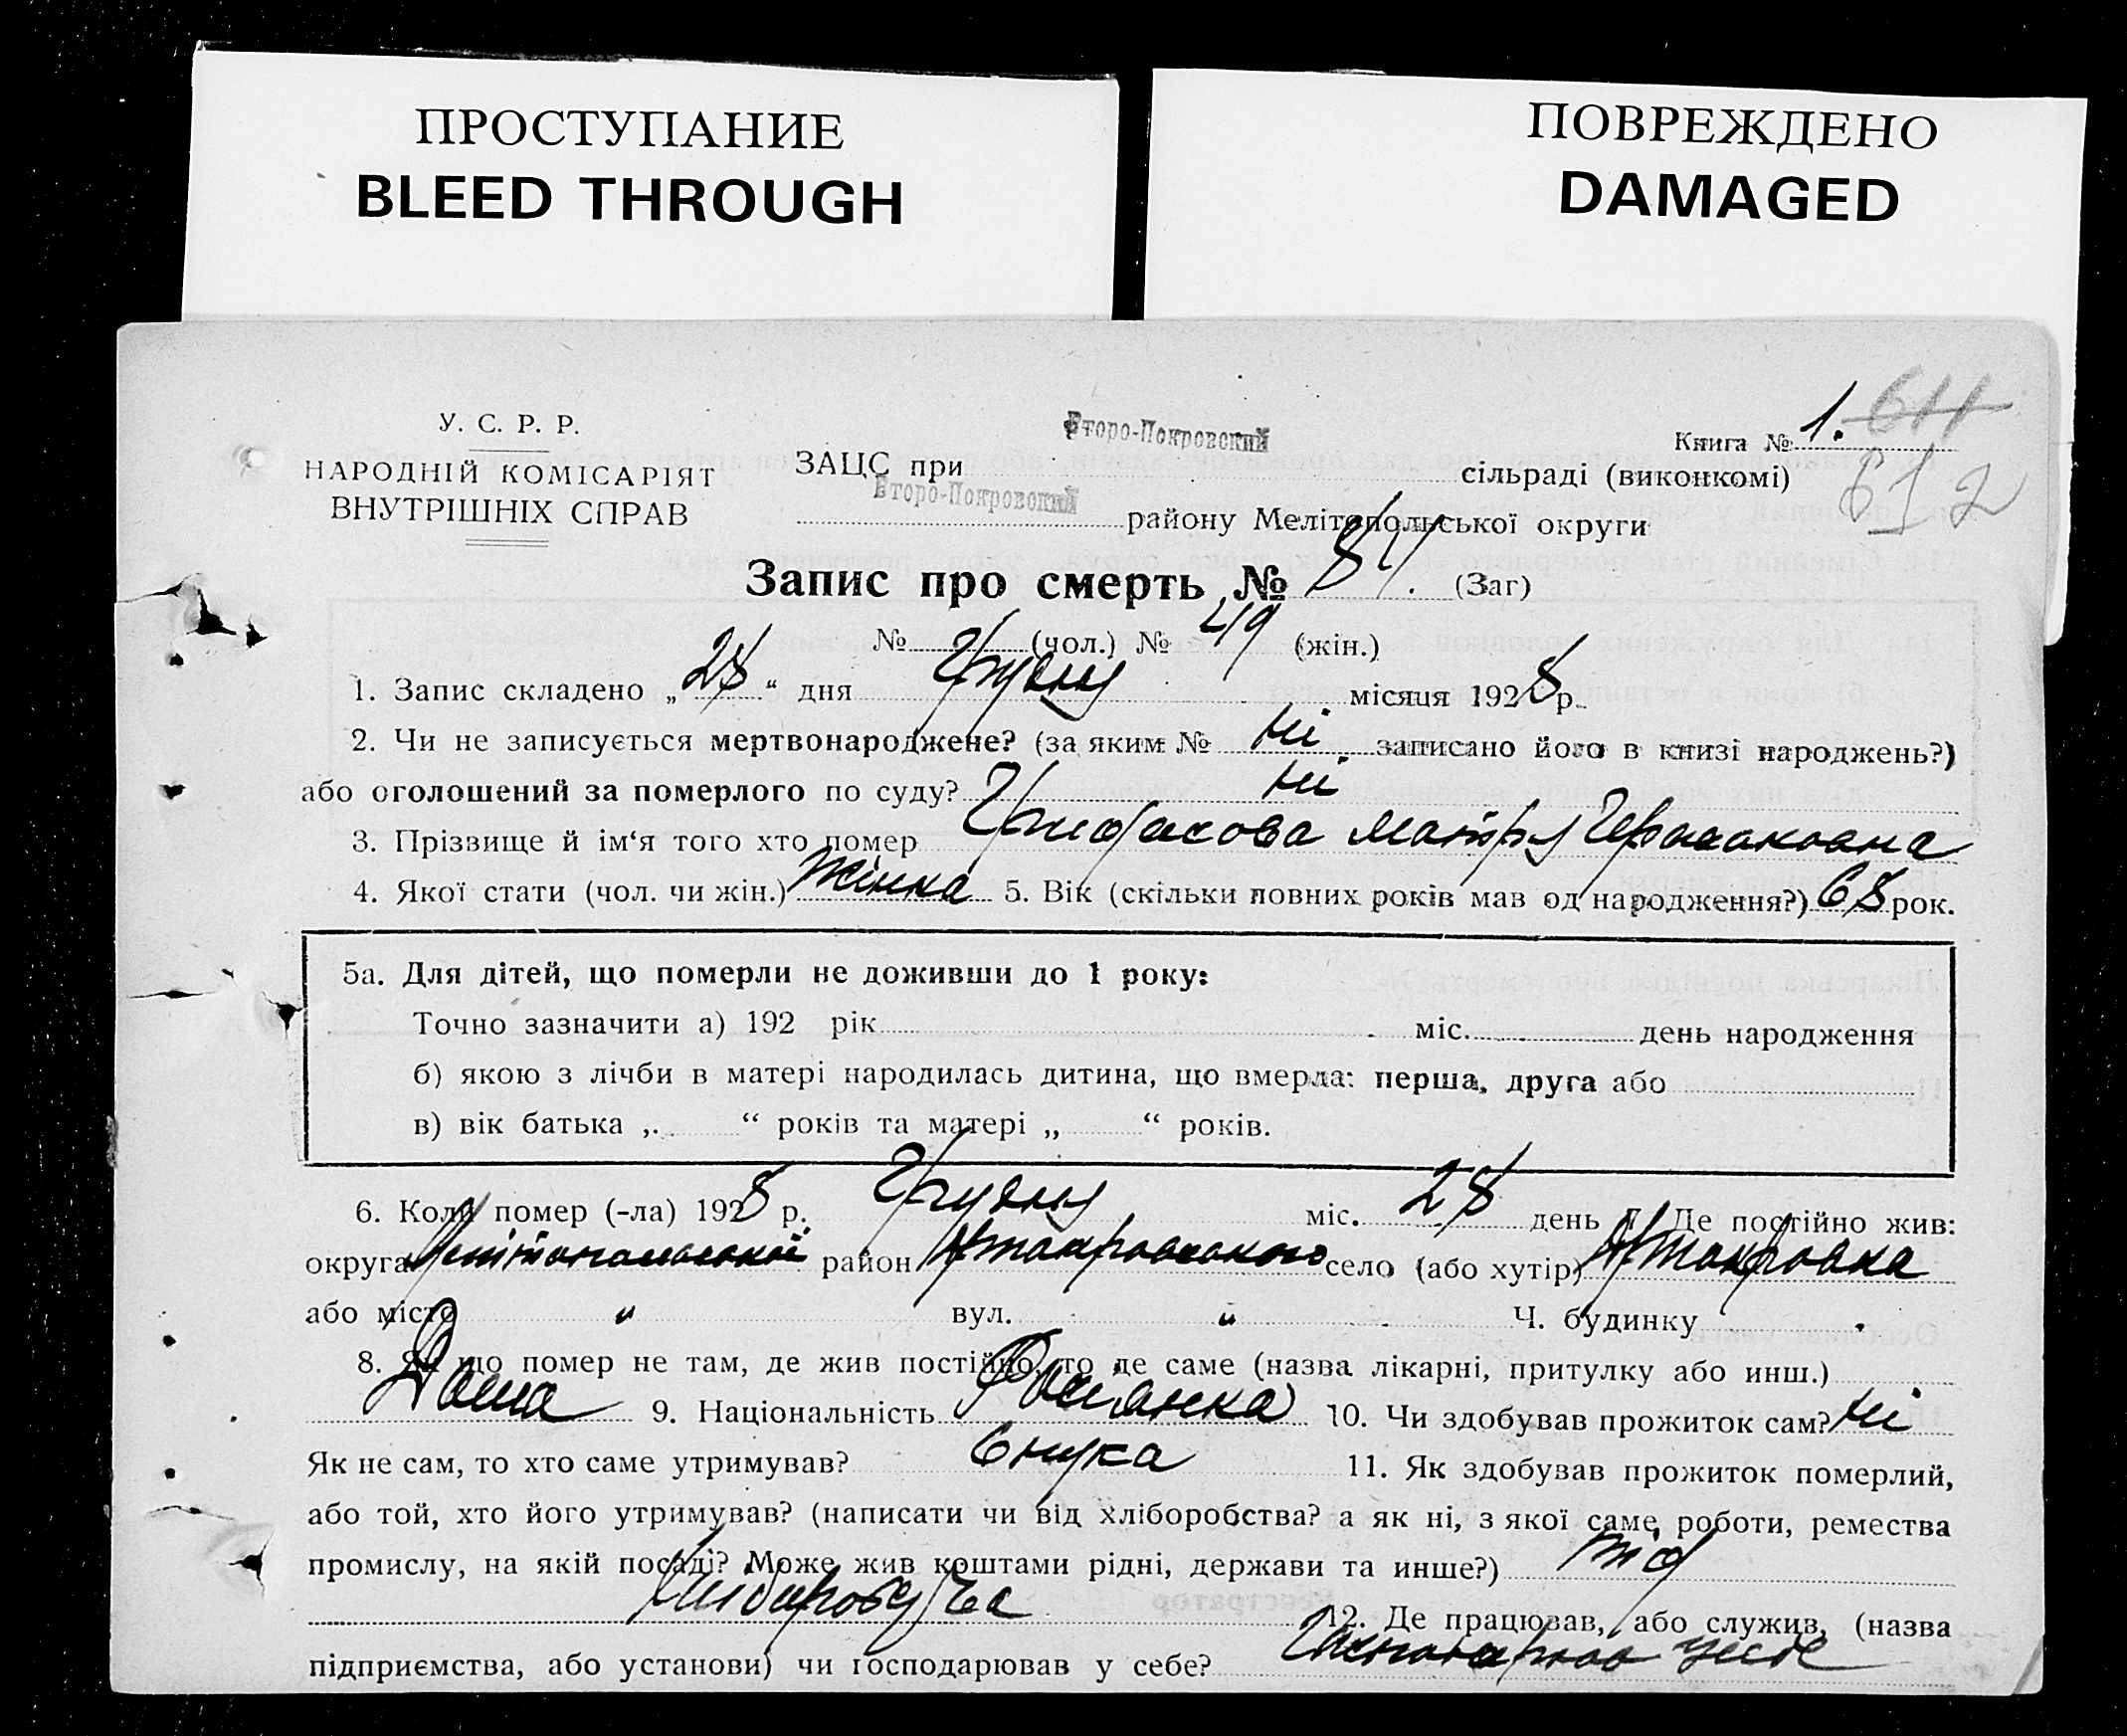 ПРОСТУПАНИЕ
BLEED THROUGH
ПОВРЕЖДЕНО
DAMAGED
У. С. Р. Р.
НАРОДНІЙ КОМІСАРІЯТ
ВНУТРІШНІХ СПРАВ
Книга № 1. 611
612
ЗАЦС при Второ-Покровский сільраді (виконкомі)
Второ-Покровский району Мелітопольської округи
Запис про смерть № 84. (Заг)
№ (чол.) № 49 (жін.)
1. Запис складено „28“ дня Грудня місяця 1928 р.
2. Чи не записується мертвонароджене? (за яким № ні записано його в книзі народжень?)
або оголошений за померлого по суду? ні
3. Прізвище й ім‘я того хто помер
4. Якої стати (чол. чи жін.) Жінка 5. Вік (скільки повних років мав од народження?) 68 рок.
5а. Для дітей, що померли не доживши до 1 року:
Точно зазначити а) 192 рік міс. день народження
б) якою з лічби в матері народилась дитина, що вмерла: перша, друга або
в) вік батька „ “ років та матері „ “ років.
6. Коли помер (-ла) 1928 р. Грудня міс. 28 день 7. Де постійно жив:
округа Мелітопольської район село (або хутір)
або місто " вул. " Ч. будинку
8. Як що помер не там, де жив постійно, то де саме (назва лікарні, притулку або инш.)
Дома 9. Національність Росіянка 10. Чи здобував прожиток сам? ні
Як не сам, то хто саме утримував? Внука 11. Як здобував прожиток померлий,
або той, хто його утримував? (написати чи від хліборобства? а як ні, з якої саме роботи, ремества
промислу, на якій посаді? Може жив коштами рідні, держави та инше?) від
Хліборобства 12. Де працював, або служив, (назва
підприємства, або установи) чи господарював у себе? Господарював у себе